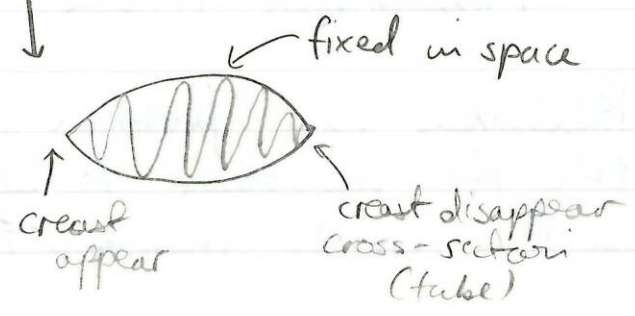 fixed in space
creast
appear
creast disappear
cross-section
(tube)